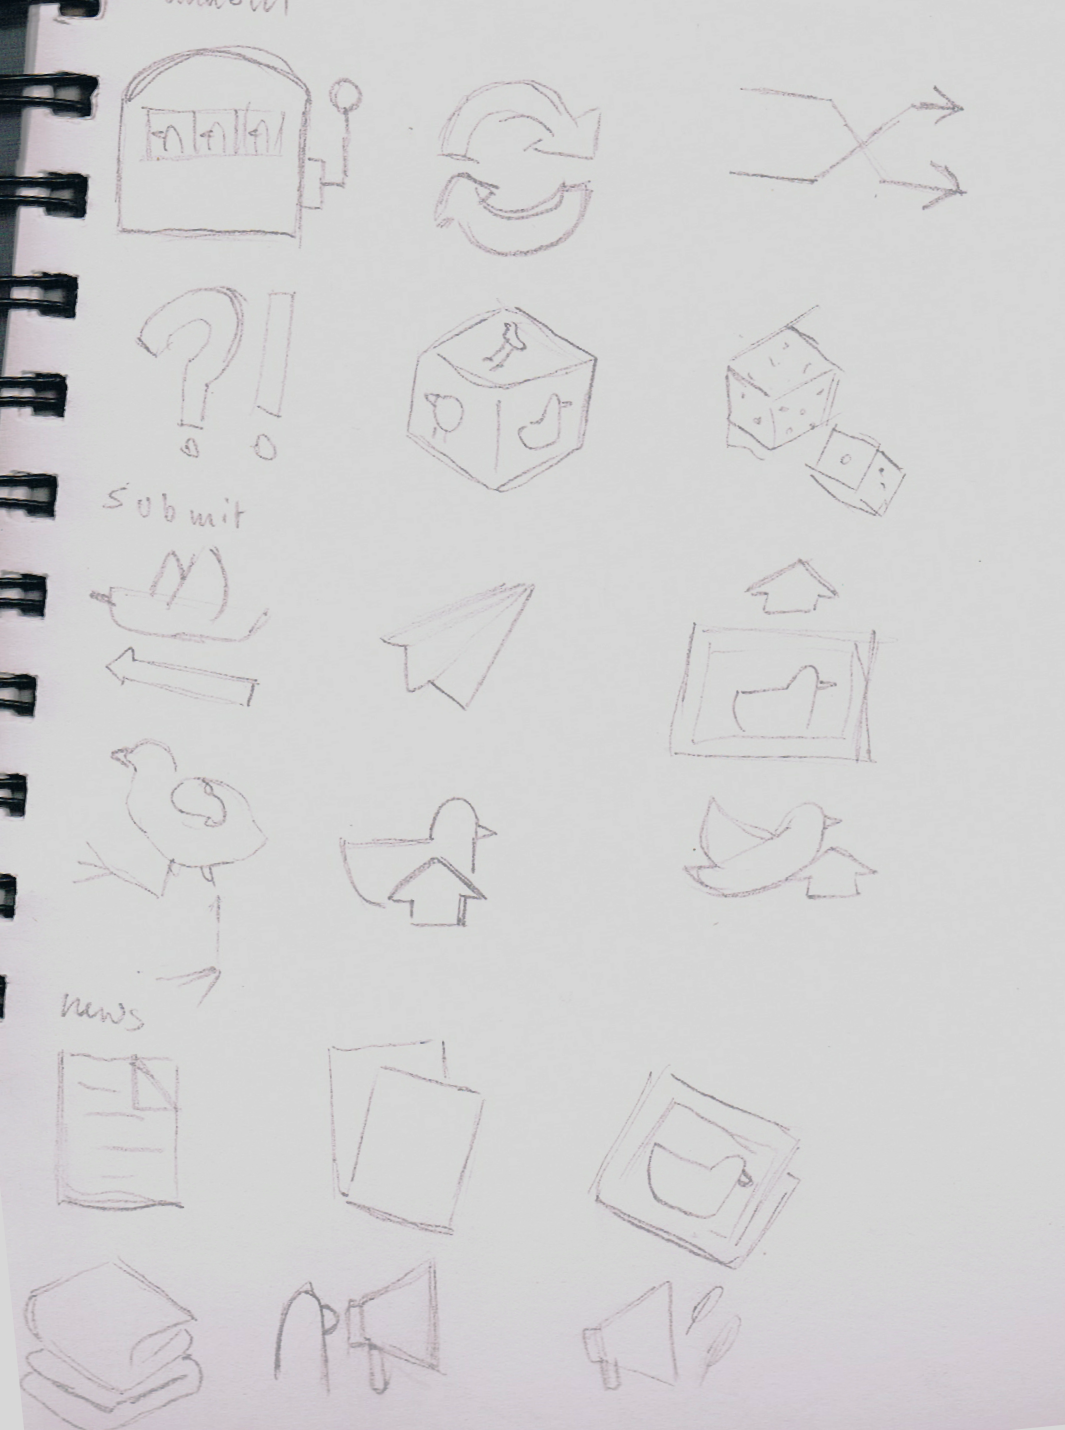 submit
news